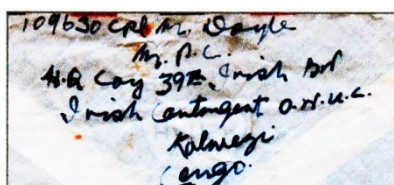 109630 Cpl M. Doyle
M.P.C.
H.Q Coy 39th Irish Bn
Irish Contingent O.N.U.C.
Kolwezi
Congo.